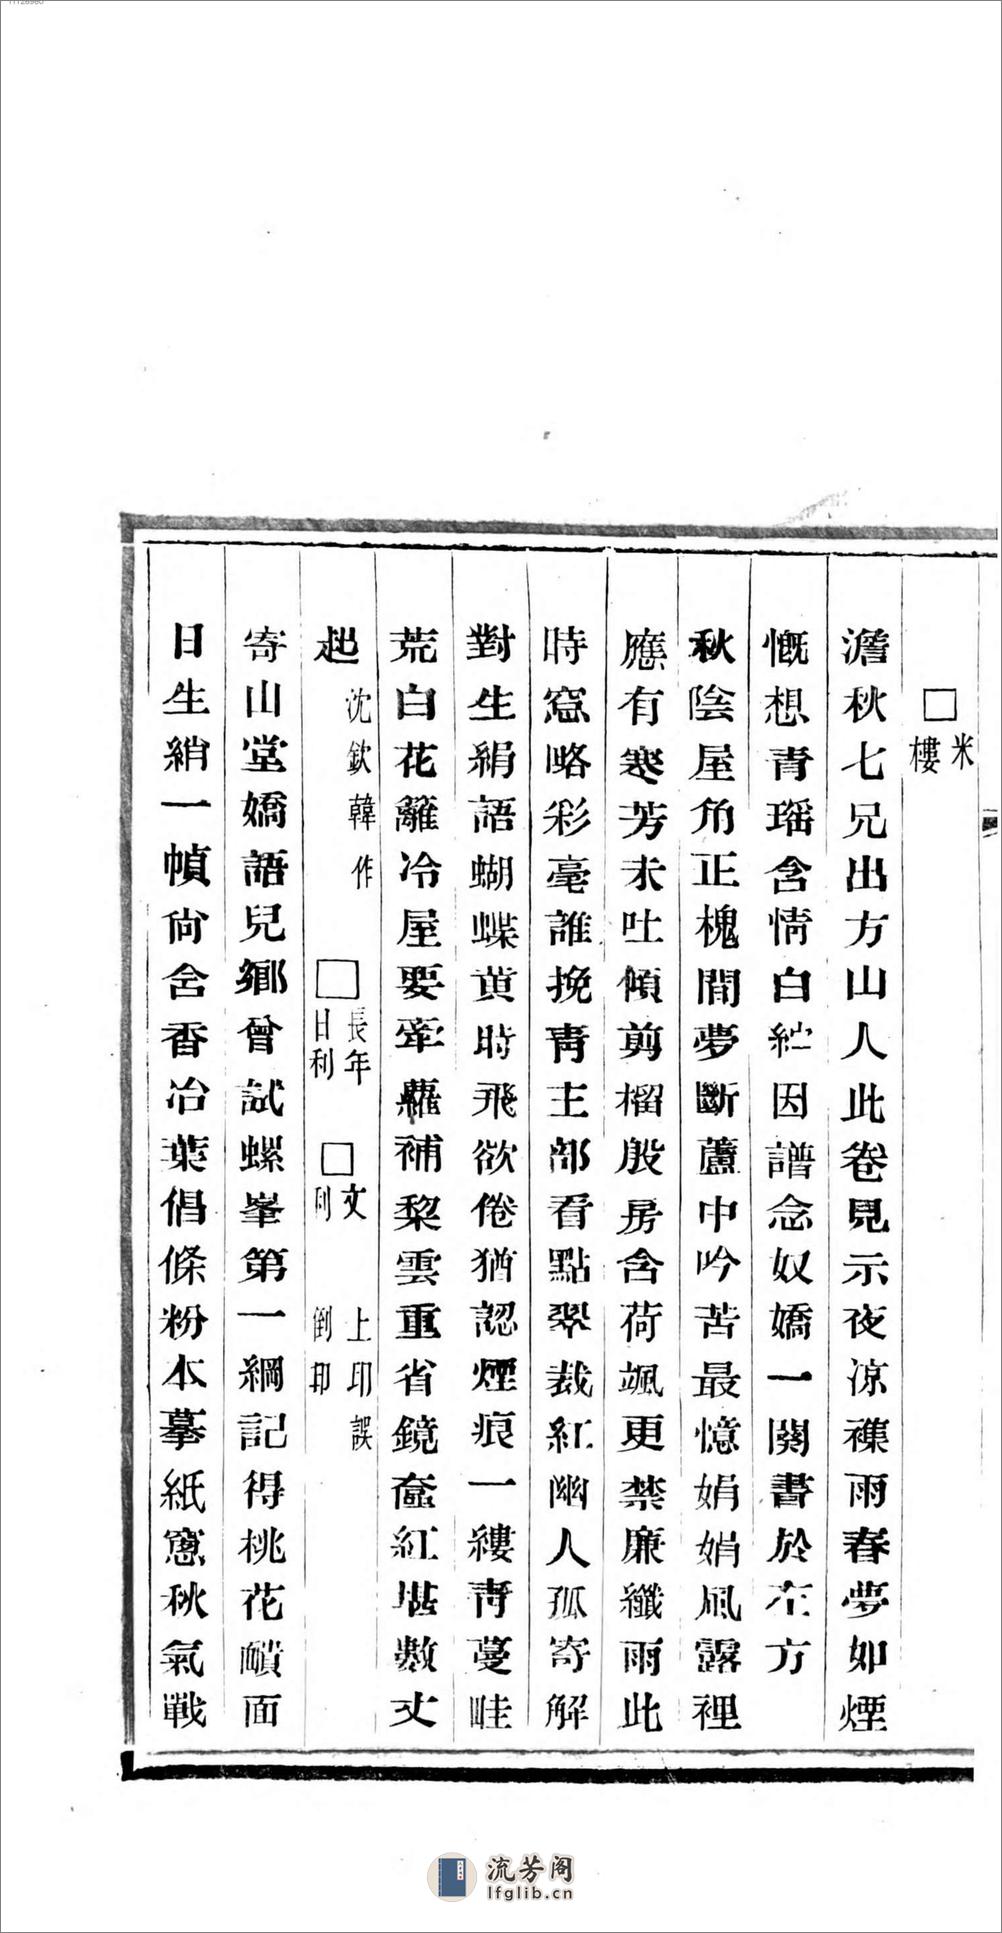 □米樓
澹秋七兄出方山人此卷見示夜凉襍雨春夢如煙
慨想青瑶含情白紵因譜念奴嬌一闋書於左方
秋陰屋角正槐閒夢斷蘆中吟苦最憶娟娟風露裡
應有寒芳未吐傾剪榴殷房含荷颯更禁廉纖雨此
時窓略彩毫誰挽靑主部看點翠裁紅幽人孤寄解
對生絹語蝴蝶黄時飛欲倦猶認煙痕一縷靑蔓畦
荒白花籬冷屋要牽蘿補黎雲重省鏡奩紅堪數丈
起沈欽韓作 □長年日利 □文 上印誤倒印
寄山堂嬌語兒鄉曾試螺峯第一綱記得桃花靧面
日生綃一幀尙舍香冶葉倡條粉本摹紙窓秋氣戰
流芳阁
lfglib.cn